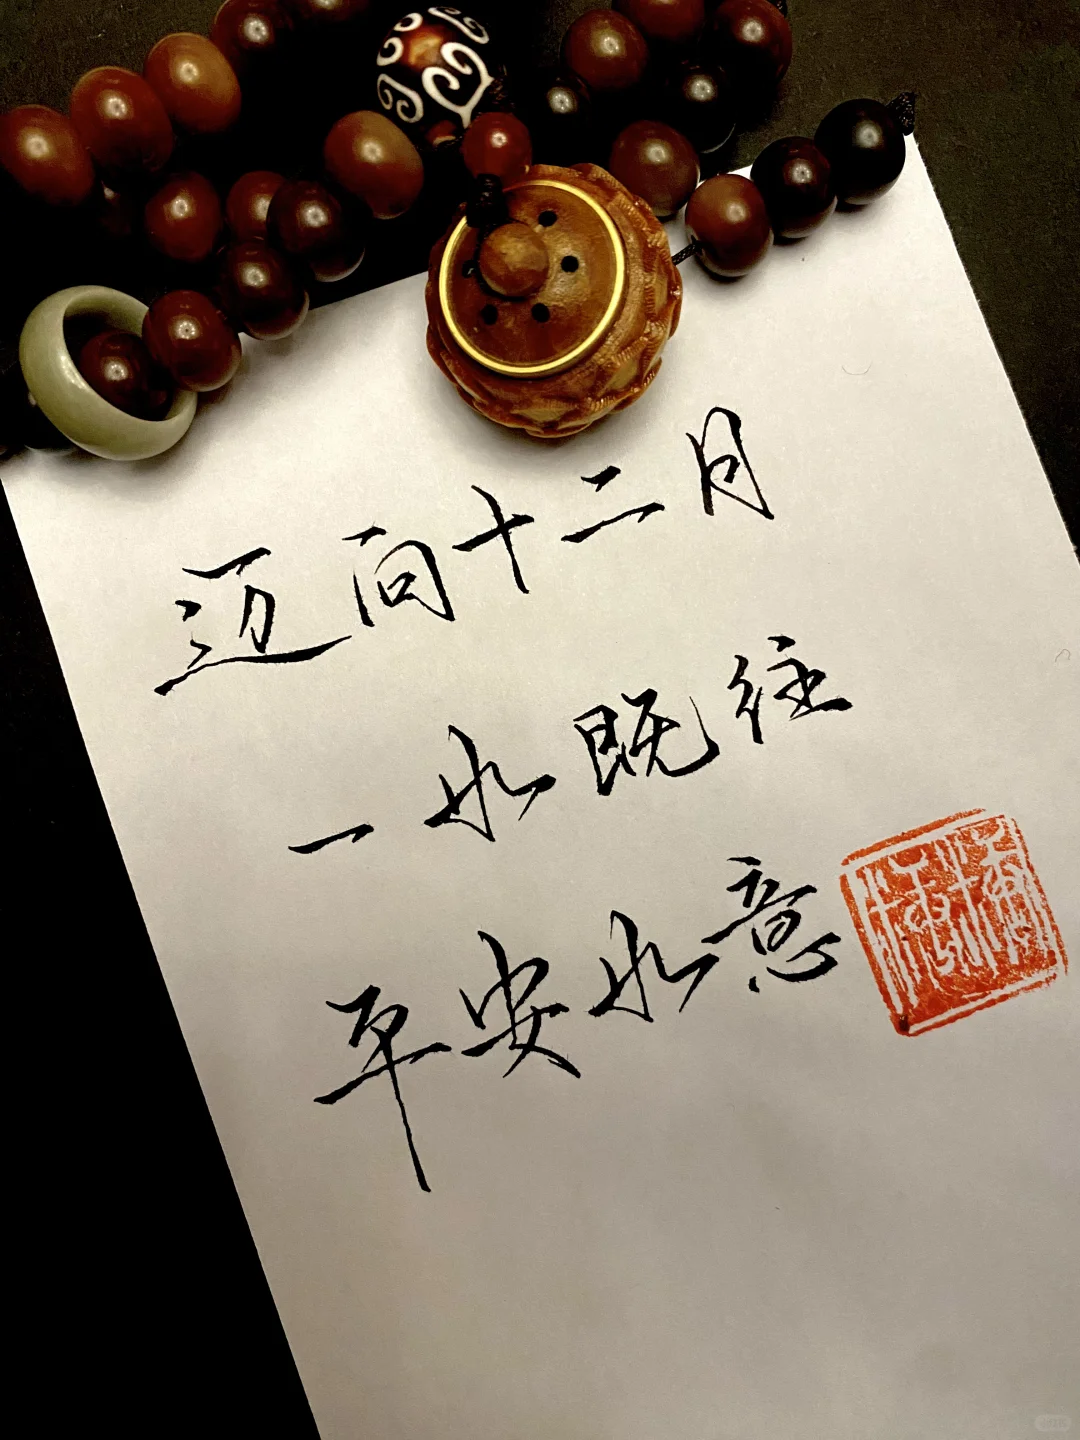 迈向十二月
一如既往
平安如意